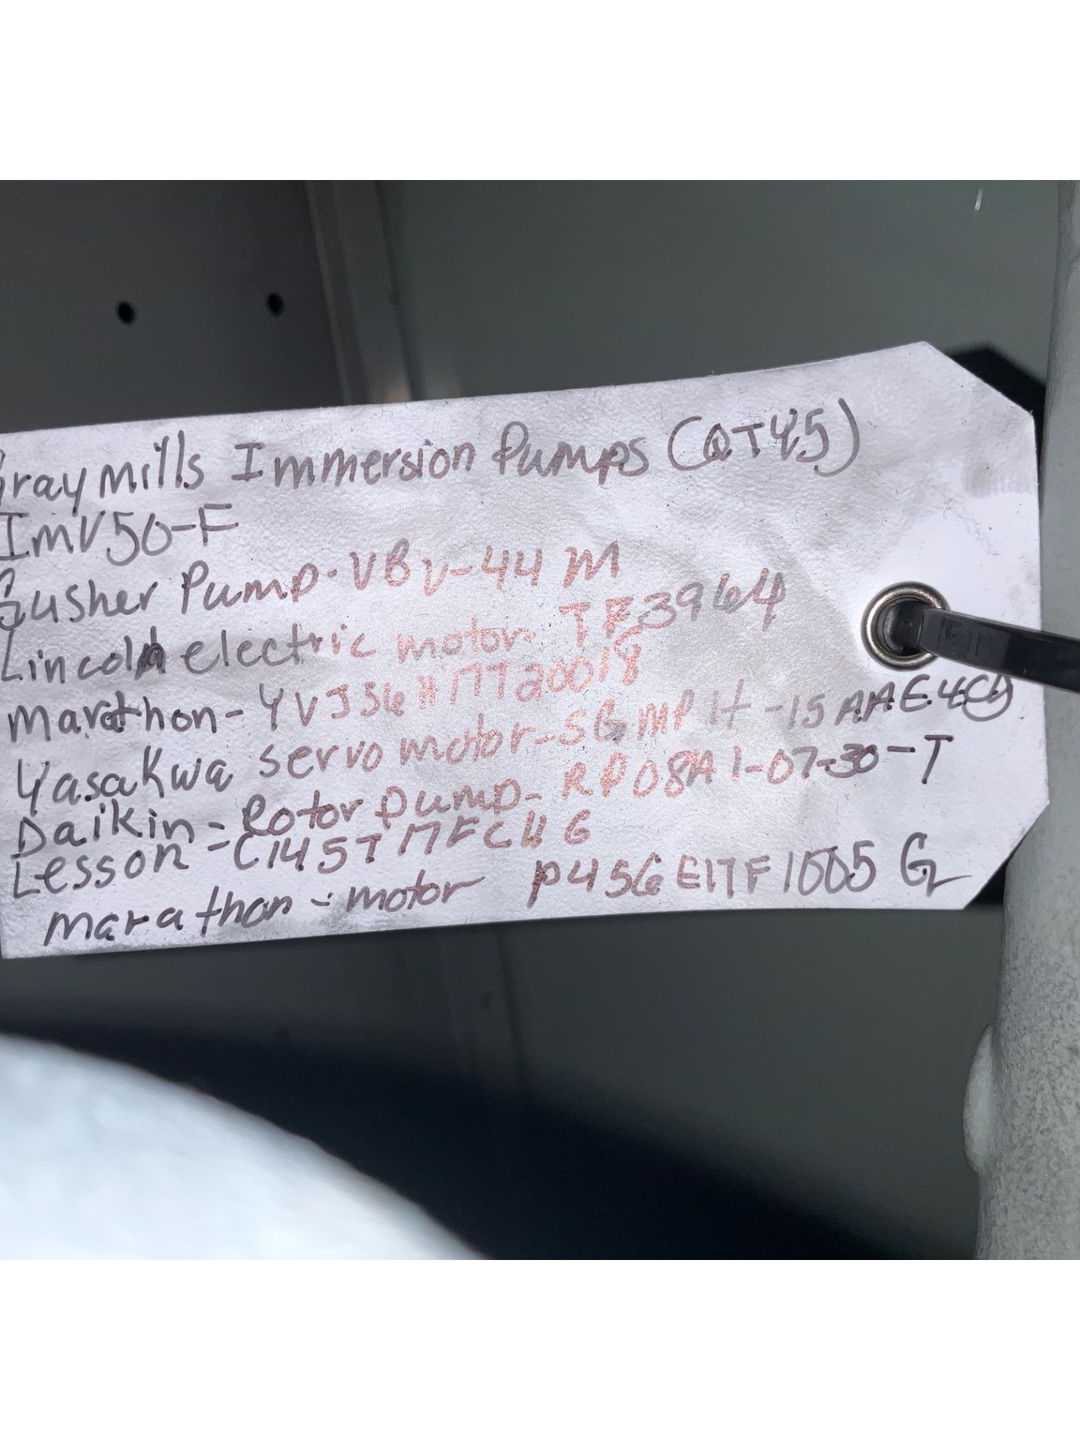 Gray Mills Immersion Pumps (QTY5)
ImV50-F
Gusher Pump-VBV-44 M
Lincoln electric motor- TF3964
Marathon- YVJ56H17T20018
Yasakwa servo motor-SGMPH-15AAE4CD
Daikin-Rotor pump- RP08A1-07-30-T
Lesson-C145T17FC11G
marathon-motor P456E17F1005 G2